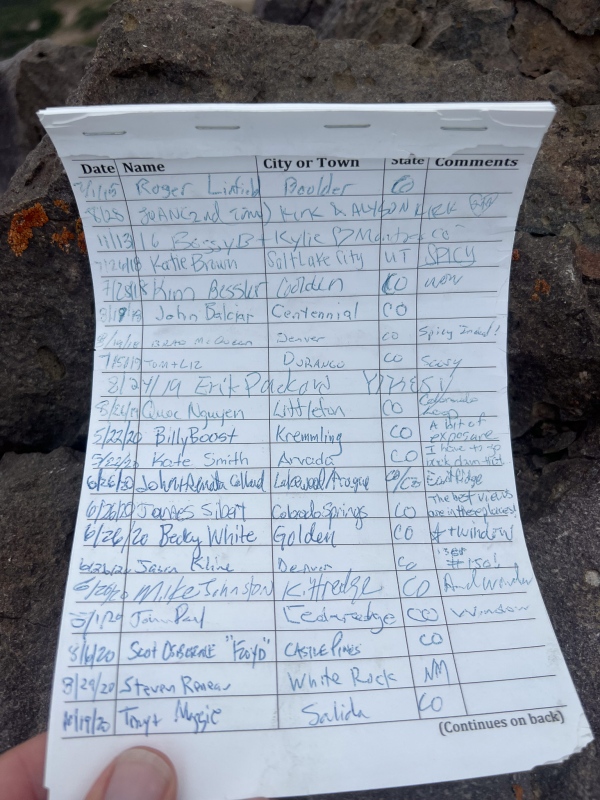 Date Name City or Town State Comments
Roger Linfield Boulder CO
8/28 JUANC (2nd time) KIRK & ALYSON KIRK
11/13/16 BergyB + Kylie
7/26/18 Katie Brown Salt Lake City UT SPICY
7/28/18 Kim Bessler Golden CO WOW
8/19/18 John Balciar Centennial CO
McQueen Denver CO Spicy Indeed!
7/15/19 TOM + LIZ DURANGO CO Scary
8/24/19 Erik Packard
8/26/19 Quoc Nguyen Littleton CO Colorado
5/22/20 Billy Boost Kremmling CO A bit of exposure
5/22/20 Kate Smith Arvada CO I have to go back down that
6/26/20 John + Renata Collard Lakewood/Prague CO/CZ East Ridge
6/26/20 James Sibert Colorado Springs CO The best views are in these places!
6/26/20 Becky White Golden CO
6/26/20 Jason Kline Denver CO #150!
6/26/20 Mike Johnston Kittredge CO And
Cedaredge CO Window
8/6/20 "Floyd" CASTLE PINES CO
8/29/20 Steven White Rock NM
10/19/20 Tony + Salida CO
(Continues on back)